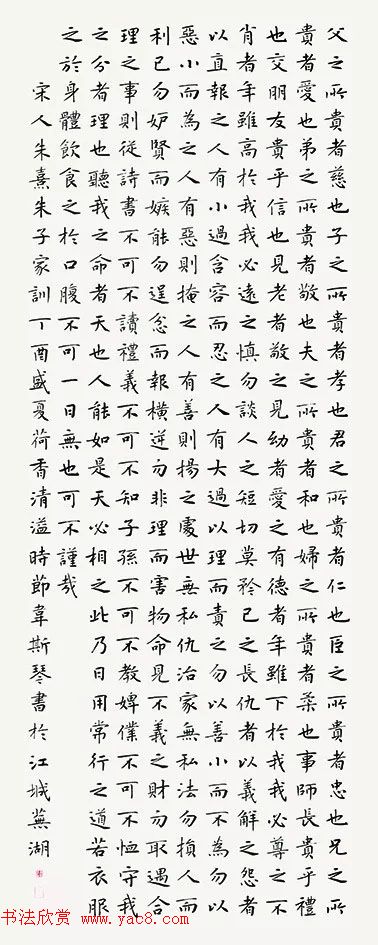 父之所貴者慈也子之所貴者孝也君之所貴者仁也臣之所貴者忠也兄之所
貴者愛也弟之所貴者敬也夫之所貴者和也婦之所貴者柔也事師長貴乎禮
也交朋友貴乎信也見老者敬之見幼者愛之有德者年雖下於我我必尊之不
肖者年雖高於我我必遠之慎勿談人之短切莫矜己之長仇者以義解之怨者
以直報之人有小過含容而忍之人有大過以理而責之勿以善小而不為勿以
惡小而為之人有惡則掩之人有善則揚之處世無私仇治家無私法勿損人而
利己勿妒賢而嫉能勿逞忿而報橫逆勿非理而害物命見不義之財勿取遇合
理之事則從詩書不可不讀禮義不可不知子孫不可不教婢僕不可不恤守我
之分者理也聽我之命者天也人能如是天必相之此乃日用常行之道若衣服
之於身體飲食之於口腹不可一日無也可不謹哉
宋人朱熹朱子家訓丁酉盛夏荷香清溢時節韋斯琴書於江城蕪湖
书法欣赏 www.yac8.com